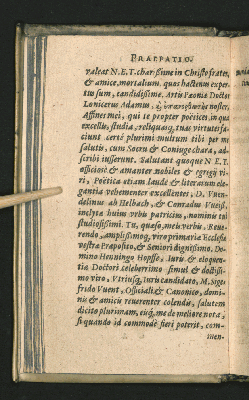 PRAEFATIO.
valeat N.E.T. charissime in Christo frater,
& amice, mortalium, quos hactenus exper-
tus sum, candidissime. Artis Paeoniae Doctor
Lonicerus Adamus, noster,
Affines mei, qui te propter poëtices, in qua
excellis, studia, reliquasq; tuas virtutes fa-
ciunt certè plurimi multum tibi per me
salutis, cum Socru & Coniuge chara, ad-
scribi iusserunt. Salutant quoque N E T.
officiosè & amanter nobiles & egregij vi-
ri, Poëtica etiam laude & literarum ele-
gantia vehementer excellentes, D.
ab Helbach, & Conradus
inclytæ huius vrbis patricius, nominis tui
studiosissimi. Tu, quæso, meis verbis, Reue-
rendo, amplissimoq; viro primariæ Ecclesiæ
vestræ Præposito, & Seniori dignissimo, Do-
mino Henningo iuris & eloquen-
tiæ Doctori celeberrimo simul & doctissi-
mo viro, Vtriusq; iuris candidato, M. Sige-
frido Vuent, Officiali & Canonico, domi-
nis & amicis reuerenter colendis, salutem
dicito plurimam, eisq; me de meliore nota,
si quando id commodè fieri poterit, com-
men-